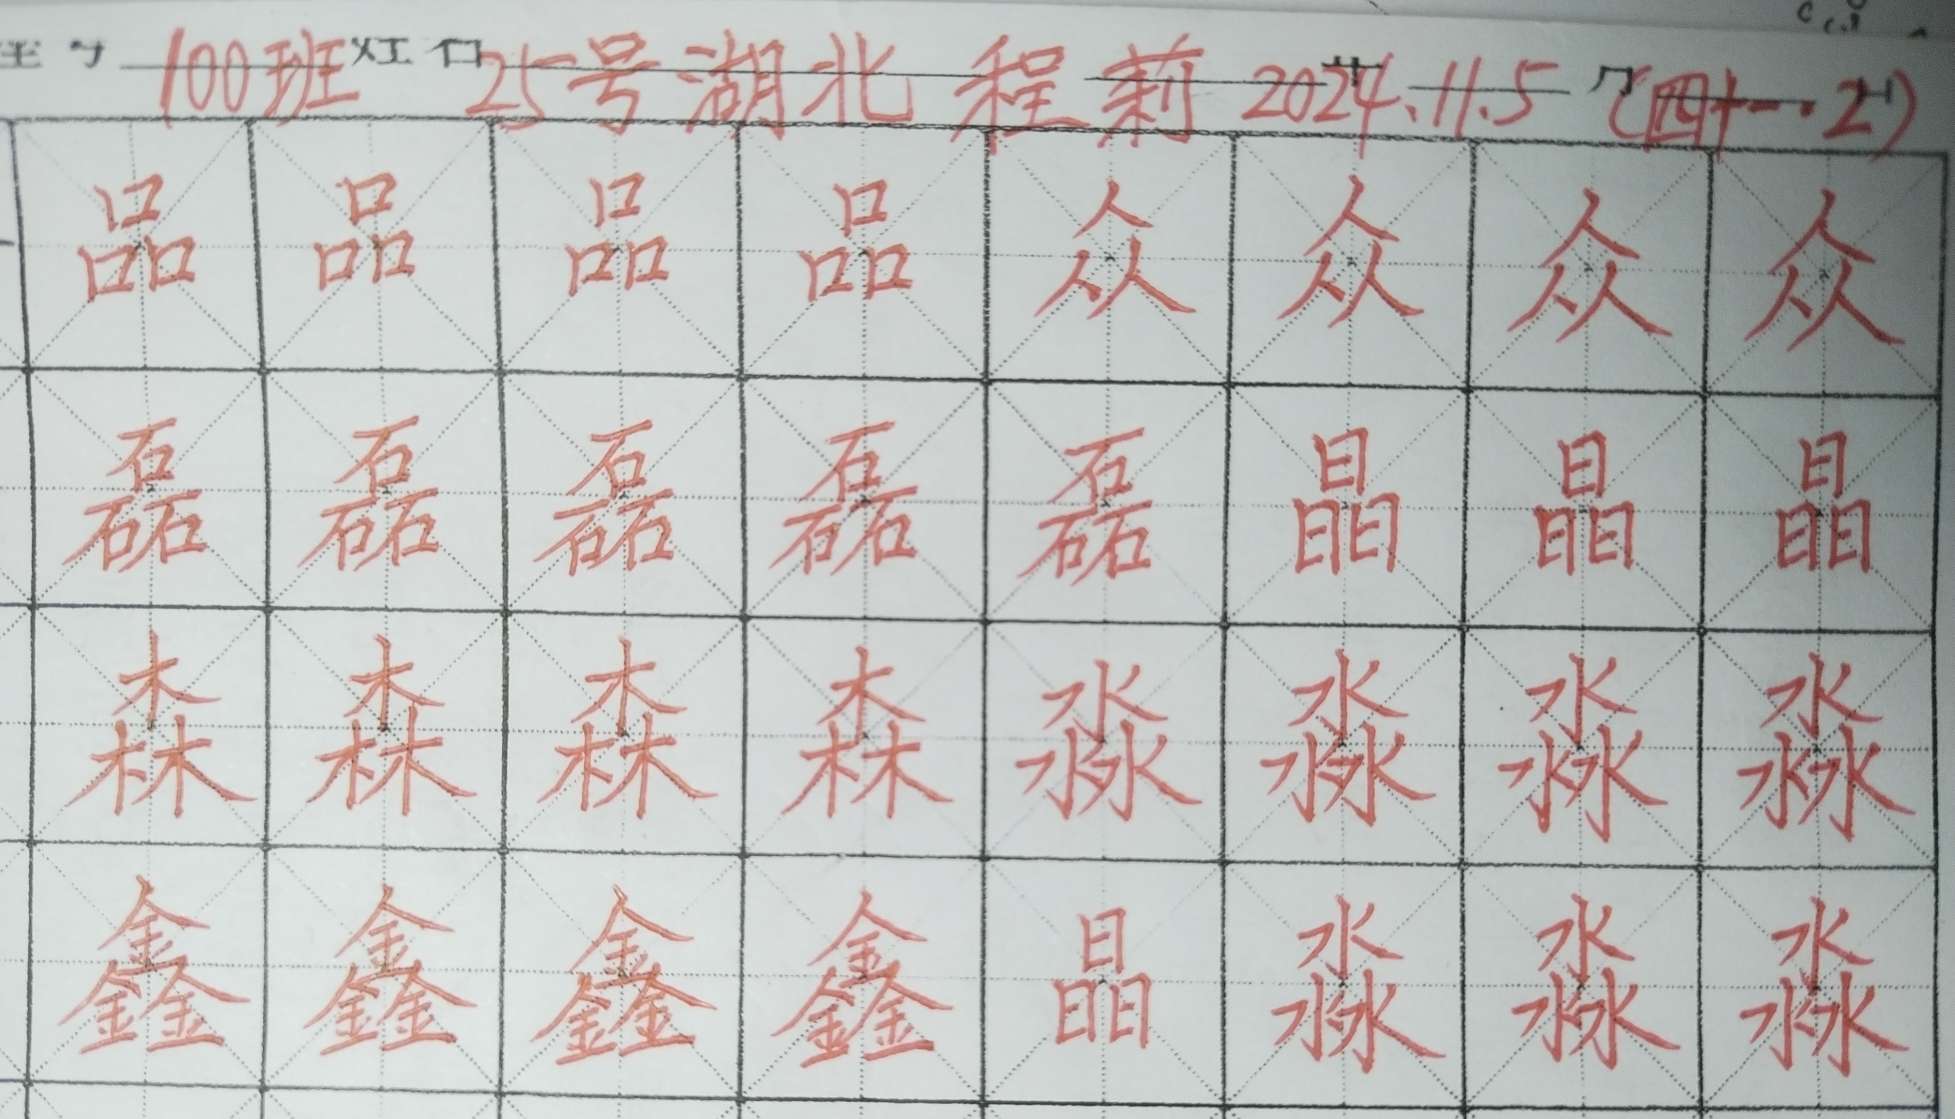 100班 25号 湖北 程莉 2024.11.5 (四十一·2)
品 品 品 品 众 众 众 众
磊 磊 磊 磊 磊 晶 晶 晶
森 森 森 森 淼 淼 淼 淼
鑫 鑫 鑫 鑫 晶 淼 淼 淼